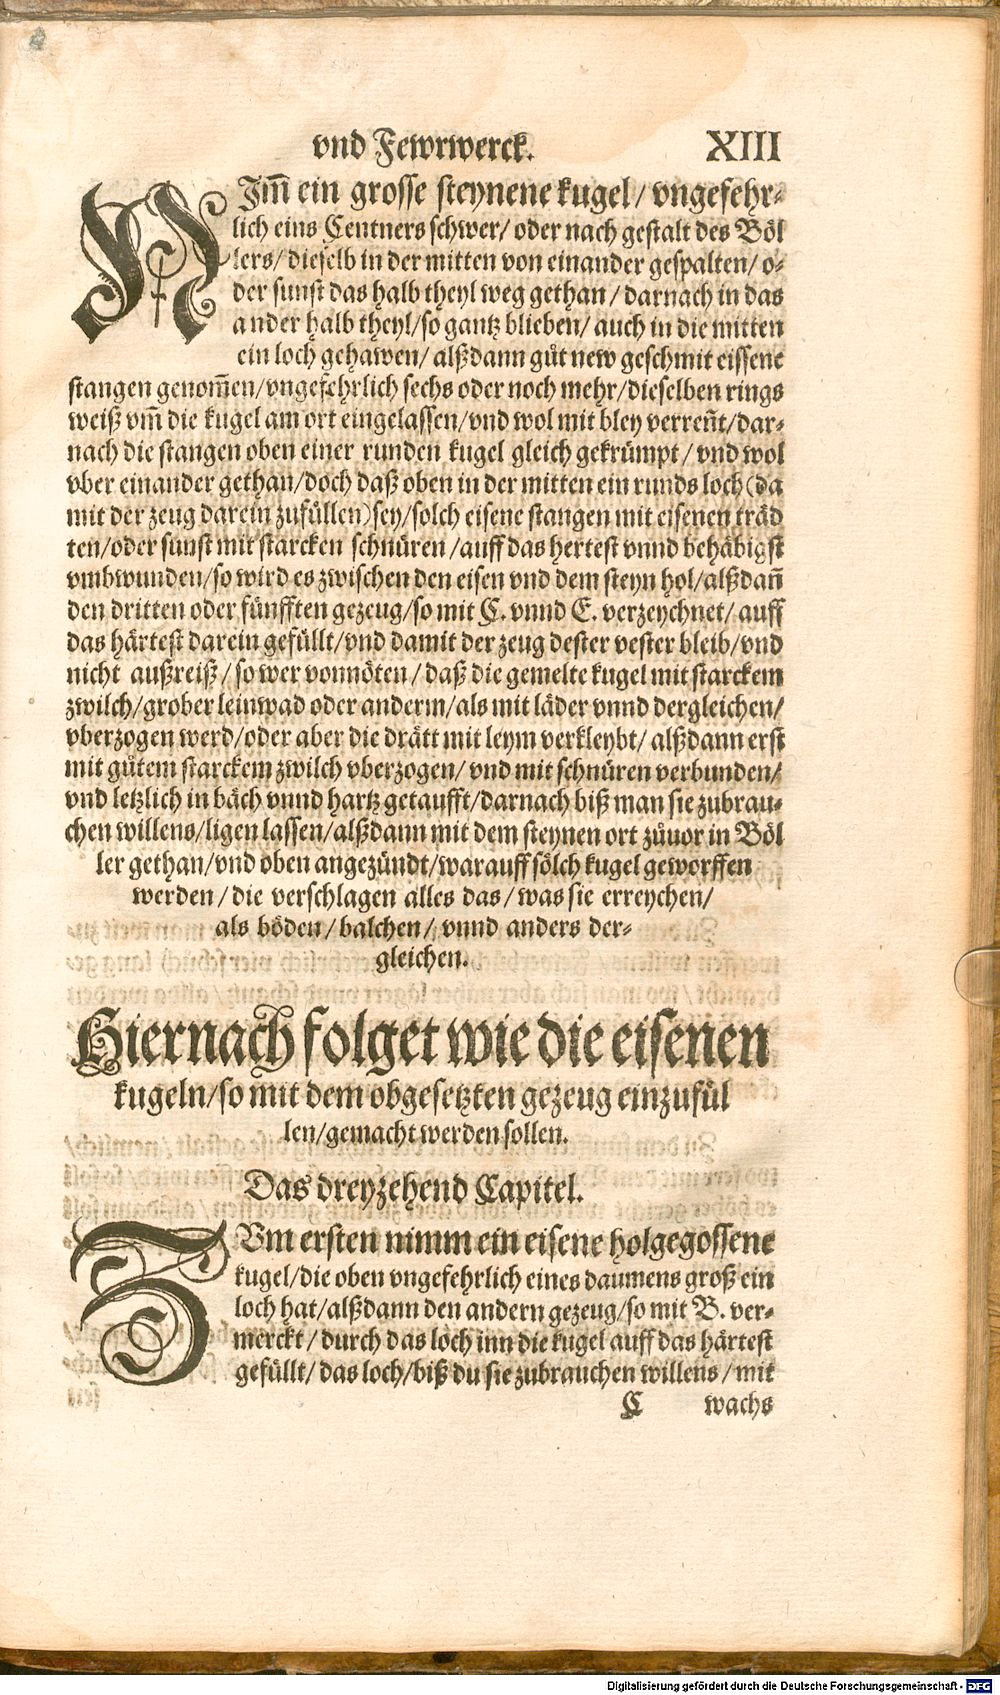 vnd Fewrwerck. XIII
NJm̃ ein grosse steynene kugel/ vngefehr⸗
lich eins Centners schwer/ oder nach gestalt des Böl
lers/ dieselb in der mitten von einander gespalten/ o⸗
der sunst das halb theyl weg gethan/ darnach in das
ander halb theyl/so gantz blieben/ auch in die mitten
ein loch gehawen/ alßdann gůt new geschmit eissene
stangen genom̃en/vngefehrlich sechs oder noch mehr/dieselben rings
weiß vm̃ die kugel am ort eingelassen/vnd wol mit bley verren̄t/dar⸗
nach die stangen oben einer runden kugel gleich gekrümpt/ vnd wol
vber einander gethan/doch daß oben in der mitten ein runds loch(da
mit der zeug darein zufüllen)sey/solch eisene stangen mit eisenen träd
ten/oder sunst mit starcken schnüren/auff das hertest vnnd behäbigst
vmbwunden/so wird es zwischen den eisen vnd dem steyn hol/alßdan̄
den dritten oder fünfften gezeug/so mit C. vnnd E. verzeychnet/ auff
das härtest darein gefüllt/vnd damit der zeug dester vester bleib/vnd
nicht außreiß/ so wer vonnöten/ daß die gemelte kugel mit starckem
zwilch/grober leinwad oder anderm/als mit läder vnnd dergleichen/
vberzogen werd/oder aber die drätt mit leym verkleybt/ alßdann erst
mit gůtem starckem zwilch vberzogen/ vnd mit schnüren verbunden/
vnd letzlich in bäch vnnd hartz getaufft/darnach biß man sie zubrau⸗
chen willens/ligen lassen/alßdann mit dem steynen ort zůuor in Böl
ler gethan/vnd oben angezündt/warauff sölch kugel geworffen
werden/ die verschlagen alles das/ was sie erreychen/
als böden/ balchen/ vnnd anders der⸗
gleichen.
Hiernach folget wie die eisenen
kugeln/so mit dem obgesetzten gezeug einzufül
len/gemacht werden sollen.
Das dreyzehend Capitel.
ZVm ersten nimm ein eisene holgegossene
kugel/die oben vngefehrlich eines daumens groß ein
loch hat/alßdann den andern gezeug/so mit B. ver⸗
merckt/ durch das loch inn die kugel auff das härtest
gefüllt/ das loch/biß du sie zubrauchen willens/ mit
C wachs
Digitalisierung gefördert durch die Deutsche Forschungsgemeinschaft - DFG